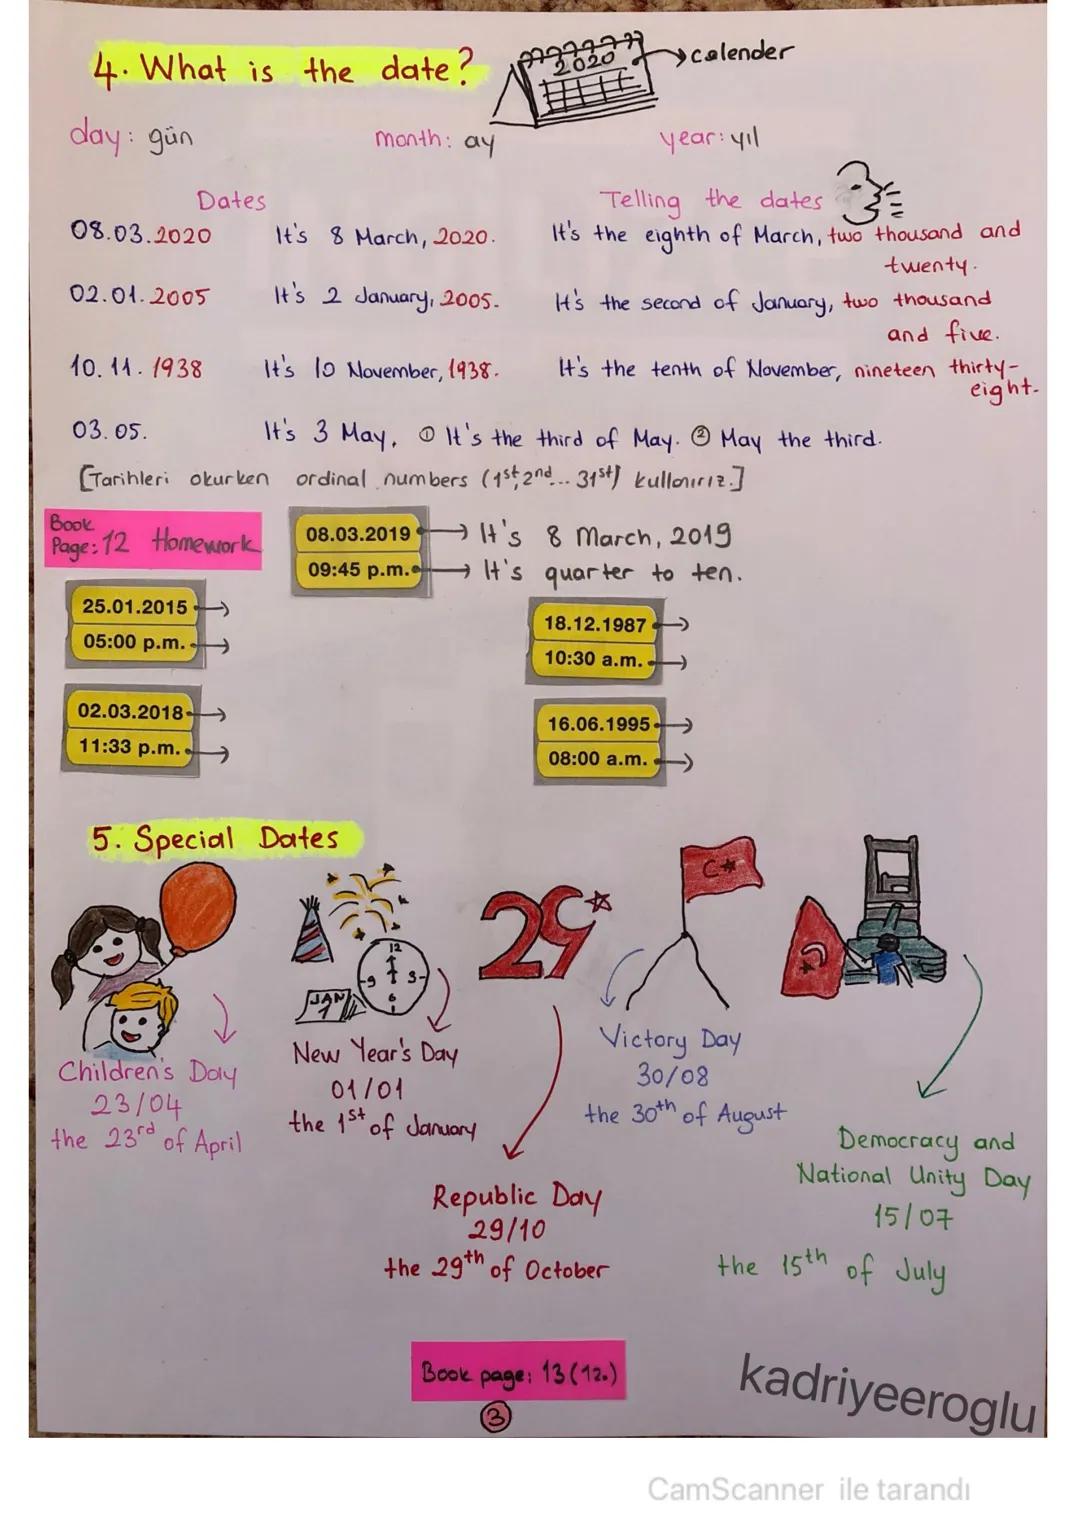 4. What is the date?
2020
calender
day: gün month: ay year: yıl
Dates Telling the dates
08.03.2020 It's 8 March, 2020. It's the eighth of March, two thousand and
twenty.
02.01.2005 It's 2 January, 2005. It's the second of January, two thousand
and five.
10.11.1938 It's 10 November, 1938. It's the tenth of November, nineteen thirty-
eight.
03.05. It's 3 May. ① It's the third of May. ② May the third.
[Tarihleri okurken ordinal numbers (1st, 2nd... 31st) kullanırız.]
Book
Page: 12 Homework
08.03.2019 → It's 8 March, 2019
09:45 p.m. → It's quarter to ten.
25.01.2015
05:00 p.m.
18.12.1987
10:30 a.m.
02.03.2018
11:33 p.m.
16.06.1995
08:00 a.m.
5. Special Dates
12
9 3
6
JAN
1
29
Children's Day
23/04
the 23rd of April
New Year's Day
01/01
the 1st of January
Republic Day
29/10
the 29th of October
Victory Day
30/08
the 30th of August
Democracy and
National Unity Day
15/07
the 15th of July
Book page: 13 (12.)
3
kadriyeeroglu
CamScanner ile tarandı